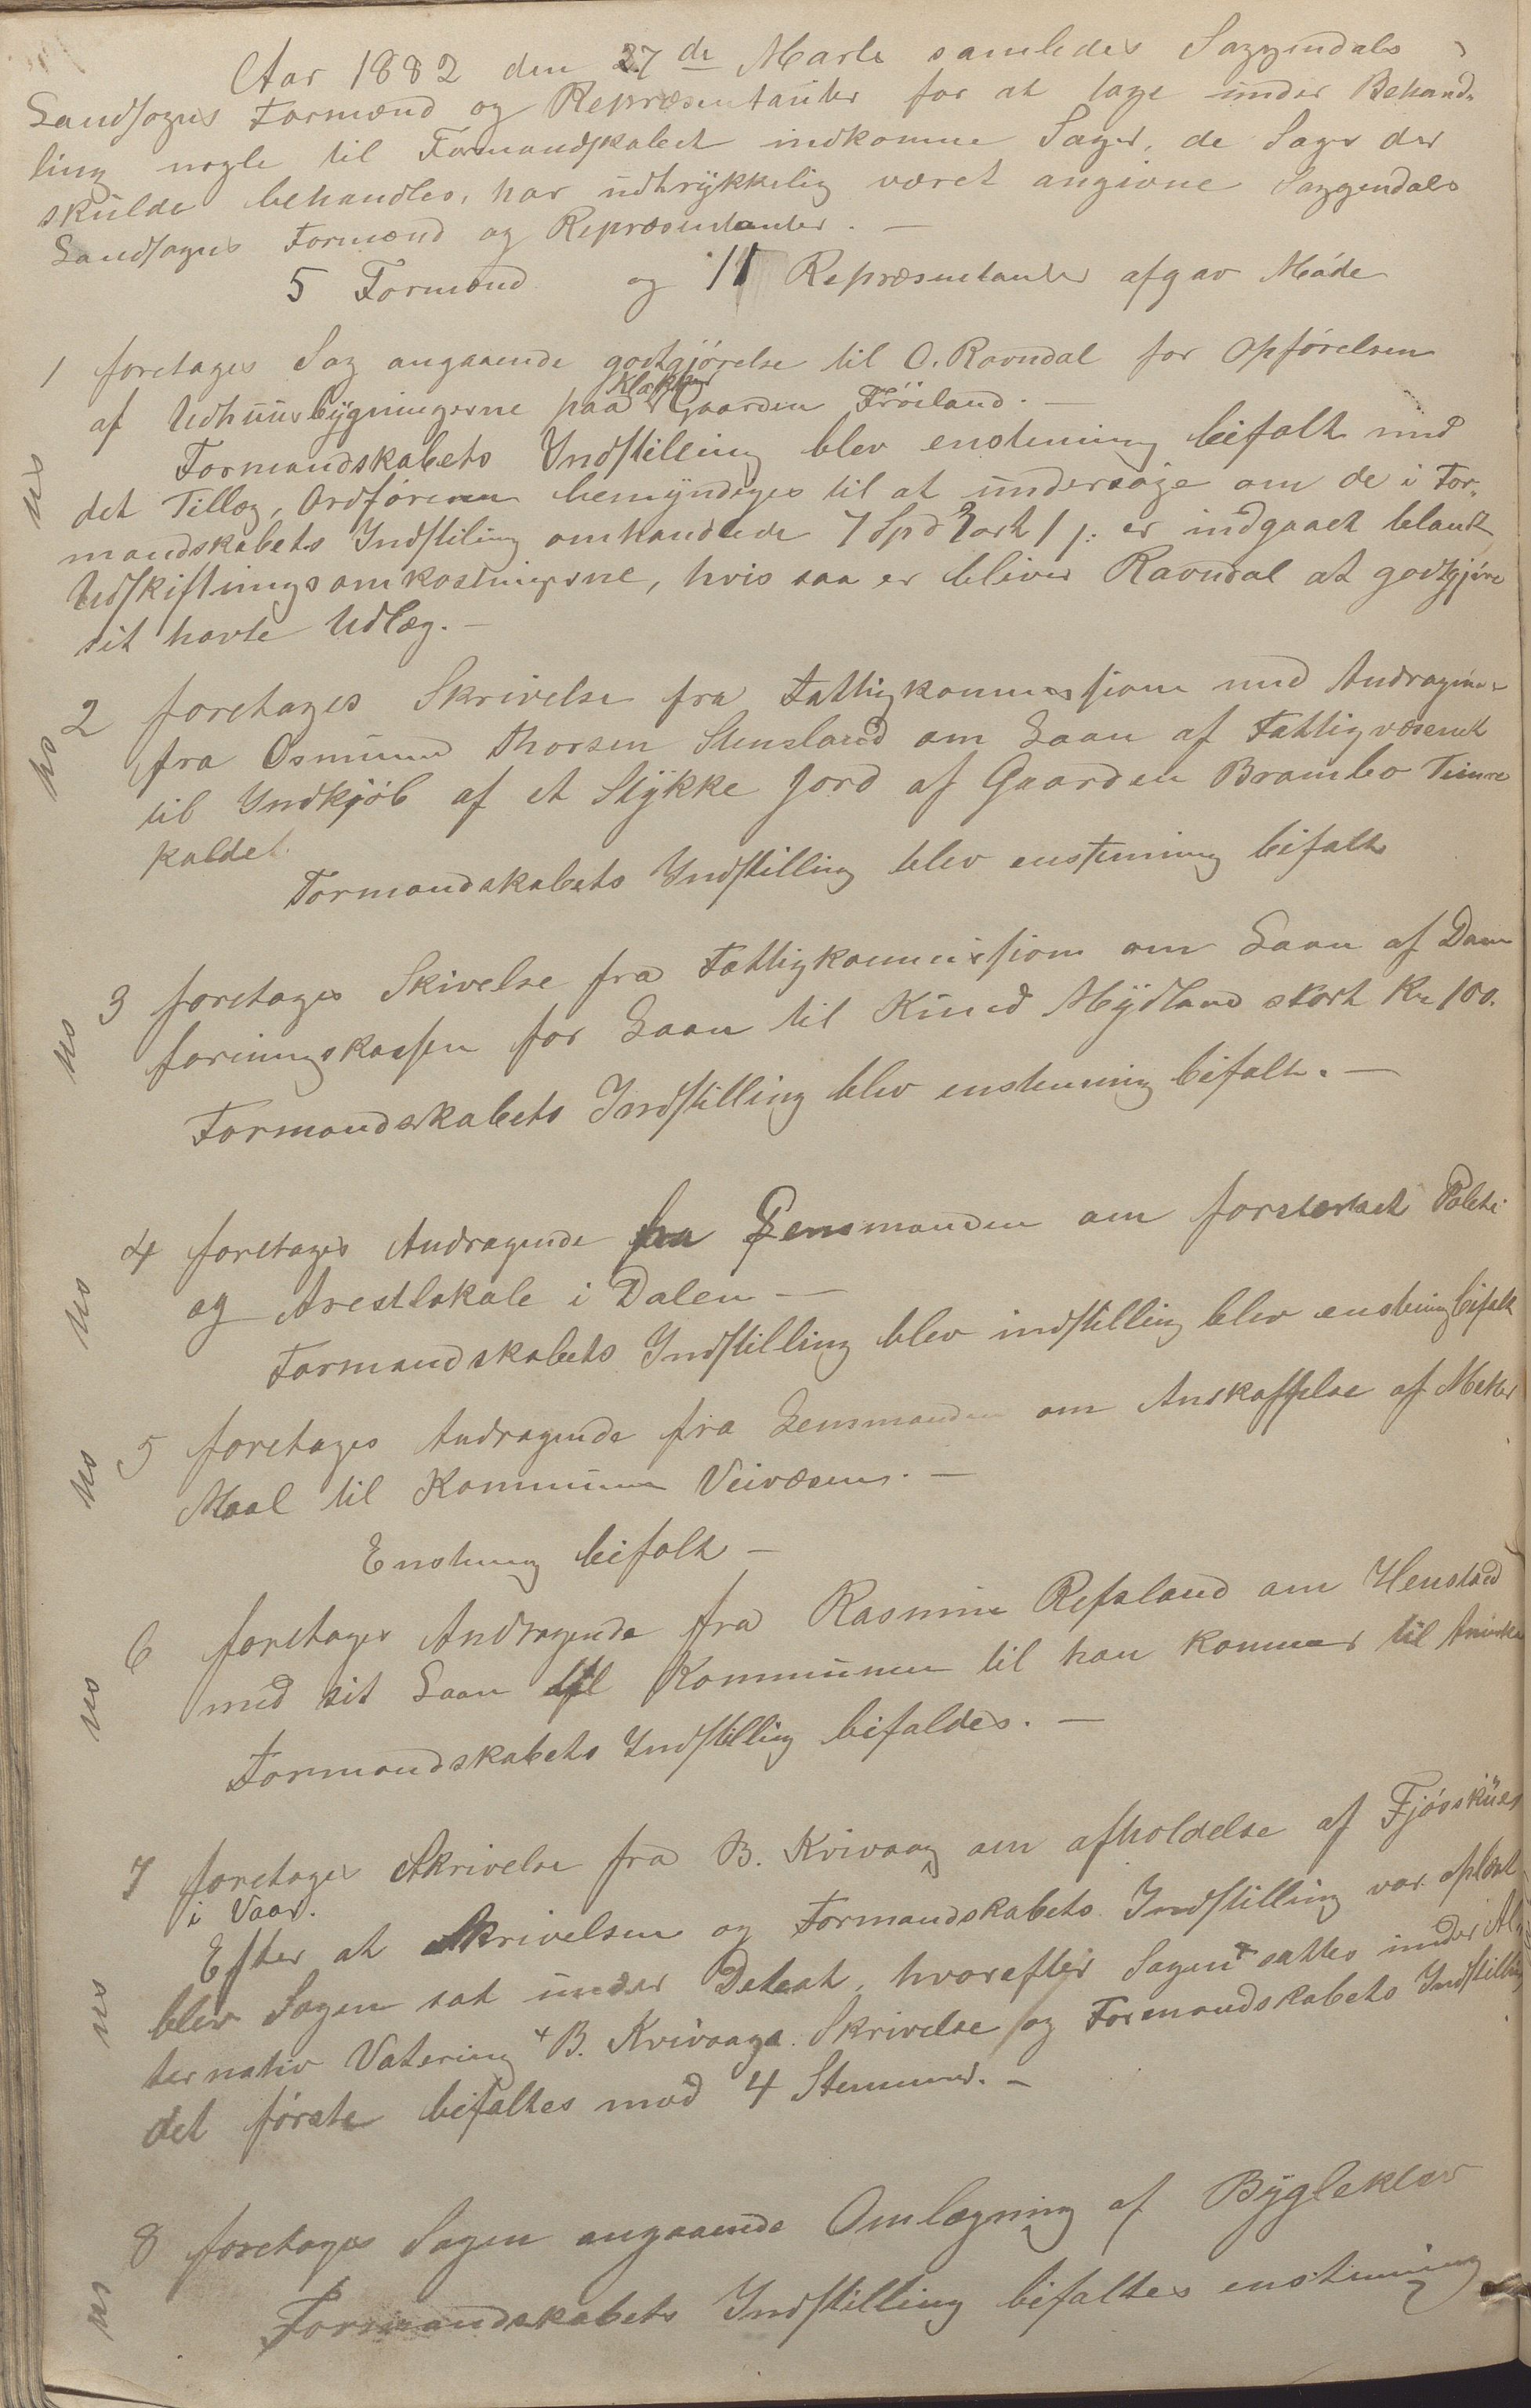 Aar 1882 den 27de Marts samledes Soggendals
Landsogns Formænd og Repræsentanter for at tage under Behand-
ling nogle til Formandskabet indkomne Sager, de Sager der
skulde behandles, har udtrykkelig været angivne Soggendals
Landsogns Formænd og Repræsentanter. —
5 Formænd og 11 Repræsentanter afgav Møde
1 foretages Sag angaaende godtgjørelse til O. Ravndal for Opførelsen
af Udhuusbygningerne paa Klokker Gaarden Frøiland. —
Formandskabets Indstilling blev enstemmig bifalt med
det Tillæg, Ordføreren bemyndiges til at undersøge om de i For-
mandskabets Indstiling omhandlede 7 Spd 3 ort 1 s: er indgaaet blant
Udskiftningsomkostningerne, hvis saa er bliver Ravndal at godtgjøre
sit havte Udlæg. —
2 foretages Skrivelse fra Fattigkommissionen med Andragende
fra Osmund Thorsen Stensland om Laan af Fattigvæsenet
til Indkjøb af et Stykke Jord af Gaarden Brambo
kaldet
Formandskabets Indstilling blev enstemmig bifalt
3 foretages Skivelse fra Fattigkommissionen om Laan af
foreningskassen for Laan til Knud Mydland stort Kr 100.
Formandskabets Indstilling blev enstemmig bifalt. —
4 foretages Andragende fra Lensmanden om forstærket Politi
og Arestlokale i Dalen —
Formandskabets Indstilling blev indstilling blev enstemig bifalt
5 foretages Andragende fra Lensmanden om Anskaffelse af Meter
Maal til Kommunen Veivæsen. —
Enstemig bifalt —
6 foretages Andragende fra Rasmus Refsland om Henstand
med sit Laan til Kommunen til han kommer til Amerika
Formandskabets Indstilling bifaldes. —
7 foretages Skrivelse fra B. Kvivaag om afholdelse af Fjøsskuer
i Vaar.
Efter at Skrivelsen og Formandskabets Indstilling var oplæst
blev Sagen sat under Debat, hvorefter Sagen sattes under Al-
ternativ Votering + B. Kvivaags Skrivelse og Formandskabets Indstilling
det første bifaltes mod 4 Stemmer. —
8 foretages Sagen angaaende Omlægning af Bygleklev
Formandskabets Indstilling bifaltes enstemmig